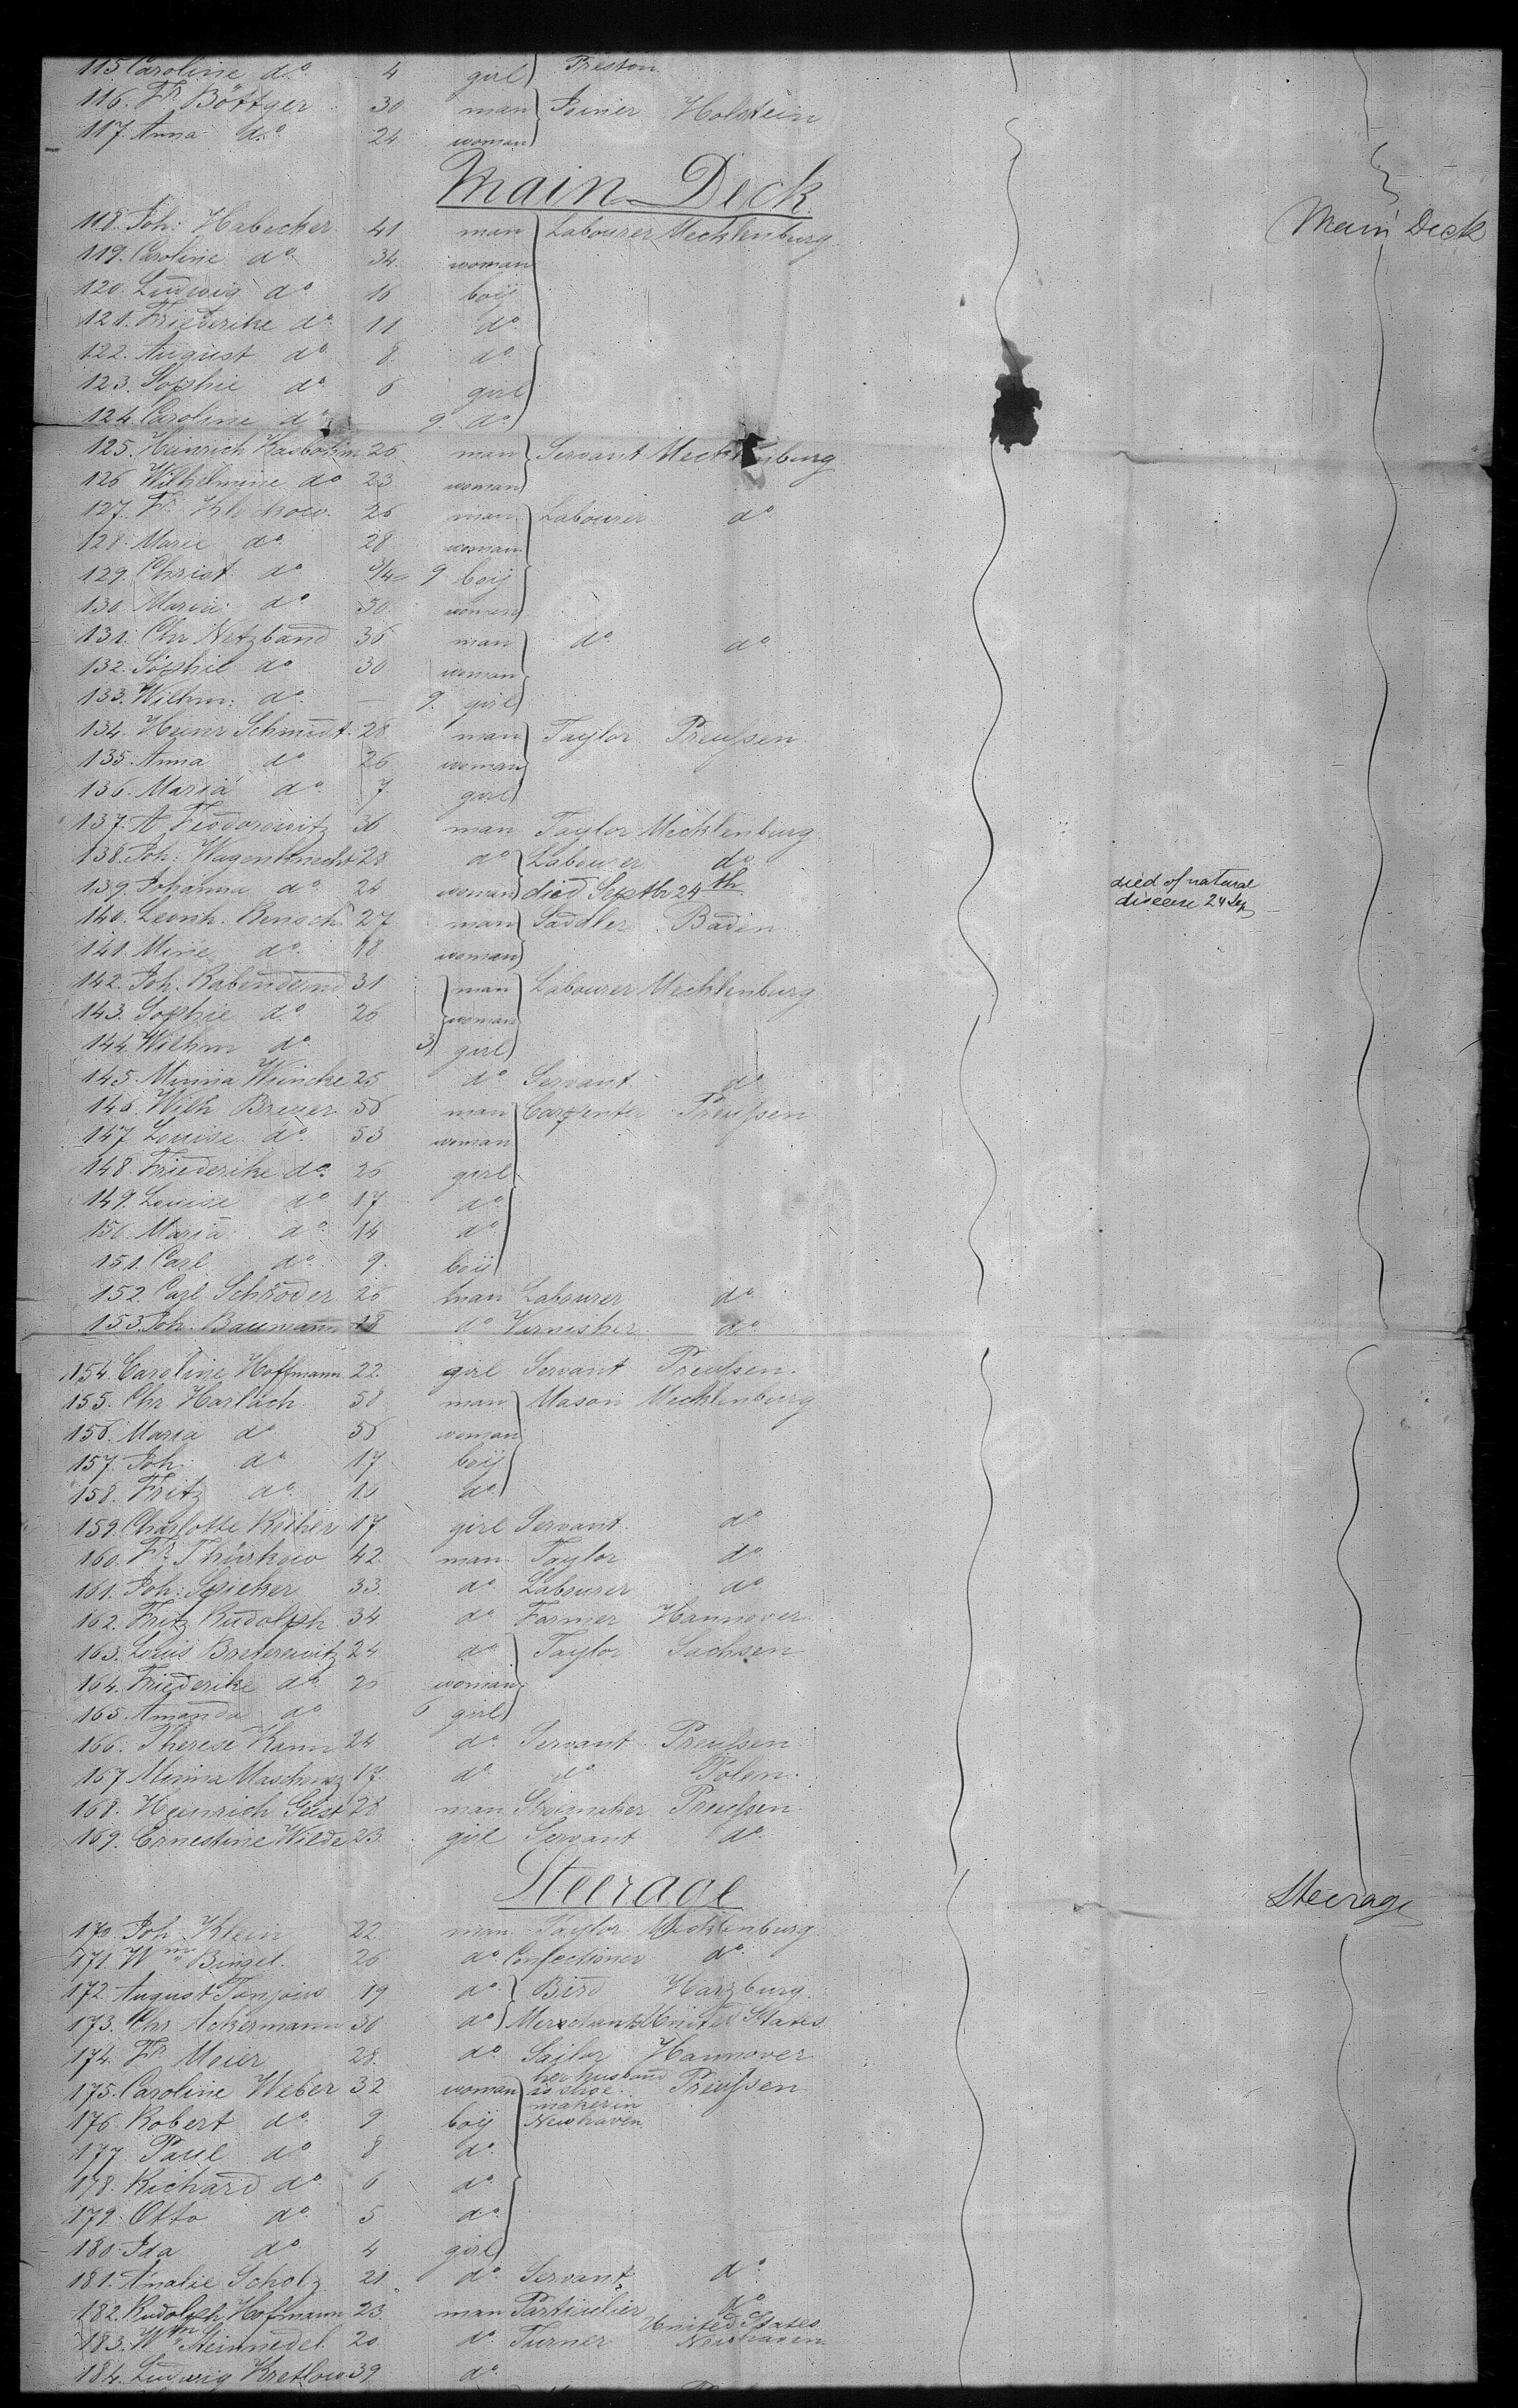 115 Caroline do 4 girl Preston
116. Fr. Böttger 30 man Joiner Holstein
117. Anna do 24 woman
Main Deck
118. Joh: Habecker 41 man Labourer Mecklenburg Main Deck
119. Caroline do 34 woman
120. Ludwig do 16 boy
121. Friederike do 11 do
122. August do 8 do
123. Sophie do 6 girl
124. Caroline do 9 do
125. Heinrich Kasbohm 26 man Servant Mecklenburg
126 Wilhelmine do 23 woman
127. Fr. Klockow 26 man Labourer do
128. Marie do 28 woman
129. Christ do 3/4 9 boy
130. Maria do 50 woman
131. Chr Netzband 36 man do do
132. Sophie do 30 woman
133. Wilhm: do — 9. girl
134. Heinr Schmidt 28 man Taylor Preussen
135. Anna do 26 woman
136. Maria do 7 girl
137. A Feodorowitz 36 man Taylor Mecklenburg
138. Joh: Wagenknecht 28 do Labourer do
139. Johanna do 24 woman died Septbr 24th died of natural
disease 24 Sep
140. Leonh. 27 man Saddler Baden
141. Mine do 18 woman
142. Joh. 31 man Labourer Mecklenburg
143. Sophie do 26 woman
144. Wilhm do 3 girl
145. Minna Wuncke 25 do Servant do
146. Wilh Breuer 56 man Carpenter Preussen
147 Louise do 53 woman
148. Friederike do 26 girl
149. Louise do 17 do
150. Maria do 14 do
151. Carl do 9. boy
152. Carl Schröder 26 man Labourer do
153. Joh. Baumann 18 do Vernisher do
154. Caroline Hoffmann 22. girl Servant Preussen.
155. Chr. Harlach 58 man Mason Mecklenburg
156. Maria do 56 woman
157. Joh. do 17 boy
158. Fritz do 10 do
159. Charlotte Kether 17 girl Servant do
160. Fr. Thürkow 42 man Taylor do
161. Joh: Spicker 33 do Labourer do
162. Fritz Rudolph 34 do Farmer Hannover
163. Louis Breterewitz 24 do Taylor Sachsen
164. Friederike do 26 woman
165. Amanda do 6 girl
166. Therese Kann 24 do Servant Preussen
167 Minna 17 do do Polen.
168. Heinrich Geist 28 man Shoemaker Preussen.
169. Ernestine Wilde 23 girl Servant do
Steerage
Steerage
170. Joh Klein 22 man Taylor Mecklenburg
171. Wm Bingel. 26 do Confectioner do
172. August 19 do Bird Harzburg
173. Chr Ackermann 30 do Merchants United States
174. Fr. Meier 28. do Sailor Hannover
175. Caroline Weber 32 woman her husband is shoe- Preussen
maker in
176. Robert do 9 boy Newhaven
177 Paul do 8 do
178. Richard do 6 do
179. Otto do 5 do
180. Ida do 4 girl
181. Amalie Scholz 21 do Servant do
182. Rudolph Hofmann 23. man Particulier do
United States
183. Wm Steinnedel 20 do Turner Newhaven
184. Ludwig Kretlow 39 do